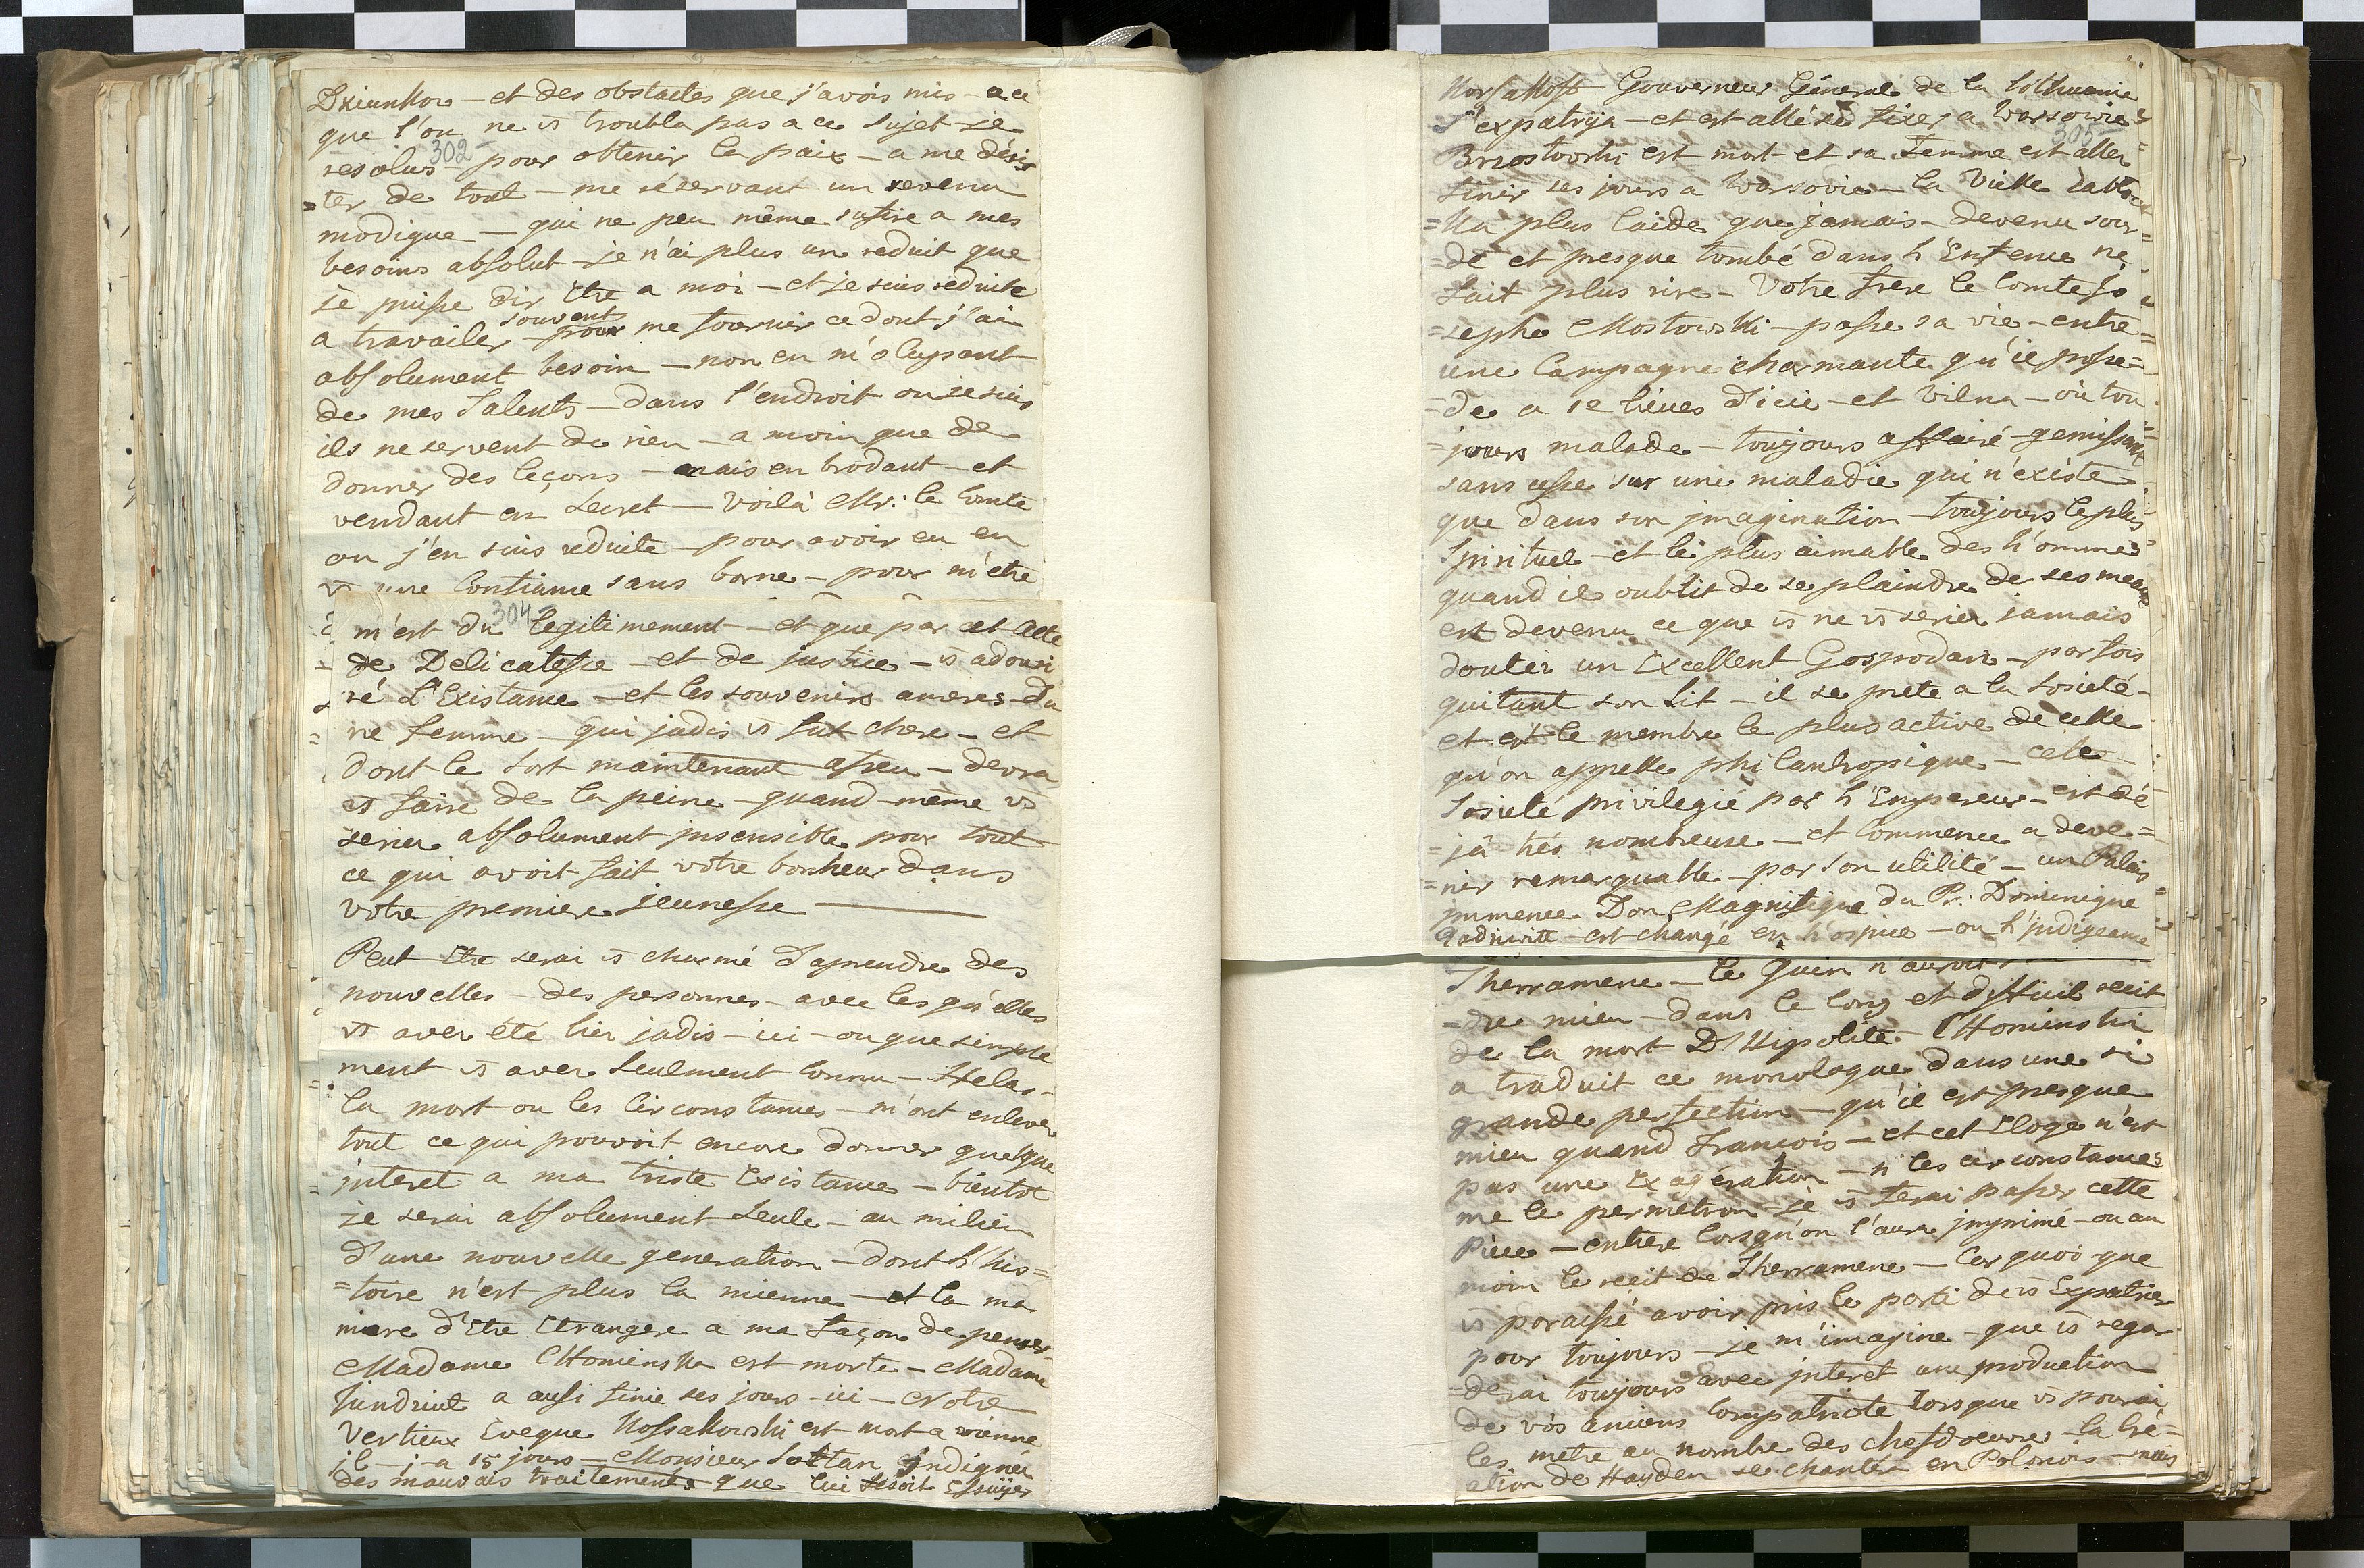 Dziunkow - et des obstacles que j'avois mis - a ce
que l'on ne vs troubla pas a ce sujet - je
302
resolus - pour obtenir la paix - a me désis
=ter de tout - me réservant un revenu
modique - qui ne peu même sufire a mes
besoins absolut - je n'ai plus un reduit que
je puisse dir être a moi - et je suis reduite
a travailer souvent pour me fournir ce dont j'ai
absolument besoin - non en m'ocupant
de mes Talents - dans l'endroit ou je suis
ils ne servent de rien - a moin que de
donner des leçons - mais en brodant - et
vendant en secret - Voilà Mr: le Comte
ou j'en suis reduite - pour avoir eu en
vs une Confiance sans borne - pour m'etre
304
m'est du legitimement - et que par cet Acte
de Delicatesse - et de justice - vs adouci
ré L'Existance - et les souvenirs amères - Du
ne femme - qui jadis vs fut chere - et
dont le sort maintenant afreu - devra
vs faire de la peine - quand même vs
serier absolument insensible pour tout
ce qui avoit fait votre bonheur dans
votre premiere jeunesse
Peut Etre serai vs charmé d'aprendre des
nouvelles - des personnes - avec les qu'elles
vs aver été lier jadis - ici - ou que simple
=ment vs aver seulment connu - Helas -
la mort ou les Circonstances - m'ont enlever
tout ce qui pouvoit encore donner quelque
=interet a ma triste Existance - bientot
je serai absolument seule - au milieu
d'une nouvelle generation - dont l'his=
=toire n'est plus la mienne - et la ma
niere d'Etre Etrangere a ma façon de penser -
Madame Chominska est morte - Madame
a aussi finie ses jours - ici - Notre
Vertieux Eveque Kossakowski est mort a vienne
il - j - a 15 jours - Monsieur Soltan Indigner
des mauvais traitements que lui fesoit Essuyer
Korsakoff Gouverneur Géneral de la Lithuanie
S'expatrija - et est allé se fixer a Warsowie
305
Brzostowski est mort et sa femme est aller
finir ses jours a Warsovie - la Vielle
=Ka plus laide que jamais - devenu sour=
=de et presque tombé dans l'Enfence ne
fait plus rire - Votre frere le Comte Jo
=sephe Mostowski - passe sa vie - entre
une Campagne charmante qu'il posse=
=de a lieues d'icie - et Vilna - où tou
=jours malade - toujours affairé - gemissant
sans cesse sur une maladie qui n'existe
que dans son imagination - toujours le plus
spirituel - et le plus aimable des hommes
quand il oublit de se plaindre de ses meaux
est devenu ce que vs ne vs serier jamais
douter un Excellent Gospodarz - par fois
quitant son Lit - il se prete a la Societé -
et est le membre le plus active de celle
qu'on appelle philantropique - cèle
Societé privilegié par l'Empereur - est dé
=jà très nombreuse - et Commence a deve=
=nir remarquable - par son utilité - un Palais
immence Don Magnifique du Pr: Dominique
Radziwill - est changé en hospice - ou l'indigeance
Therramene - le Quin n'auroit
-dre mieu - dans le long et difficil recit
de la mort D'Hipolite - Chominski
a traduit ce monologue dans une si
grande perfection - qu'il est presque
mieu quand françois - et cet Eloge n'est
pas une Exagération - si les circonstances
me le permetron - je vs ferai passer cette
Pièce - entiere lorsqu'on l'aura imprimé - ou au
moin le reçit de Therramene - Car quoi que
vs paraissé avoir pris le parti de vs Expatrier
pour toujours - je m'imagine - que vs regar
-derai toujours avec interet une production
de vos anciens Compatriote lorsque vs pourai
les metre au nombre des chefdoeuvres - la Cré-
ation de Hayden se chantera en Polonois - mais